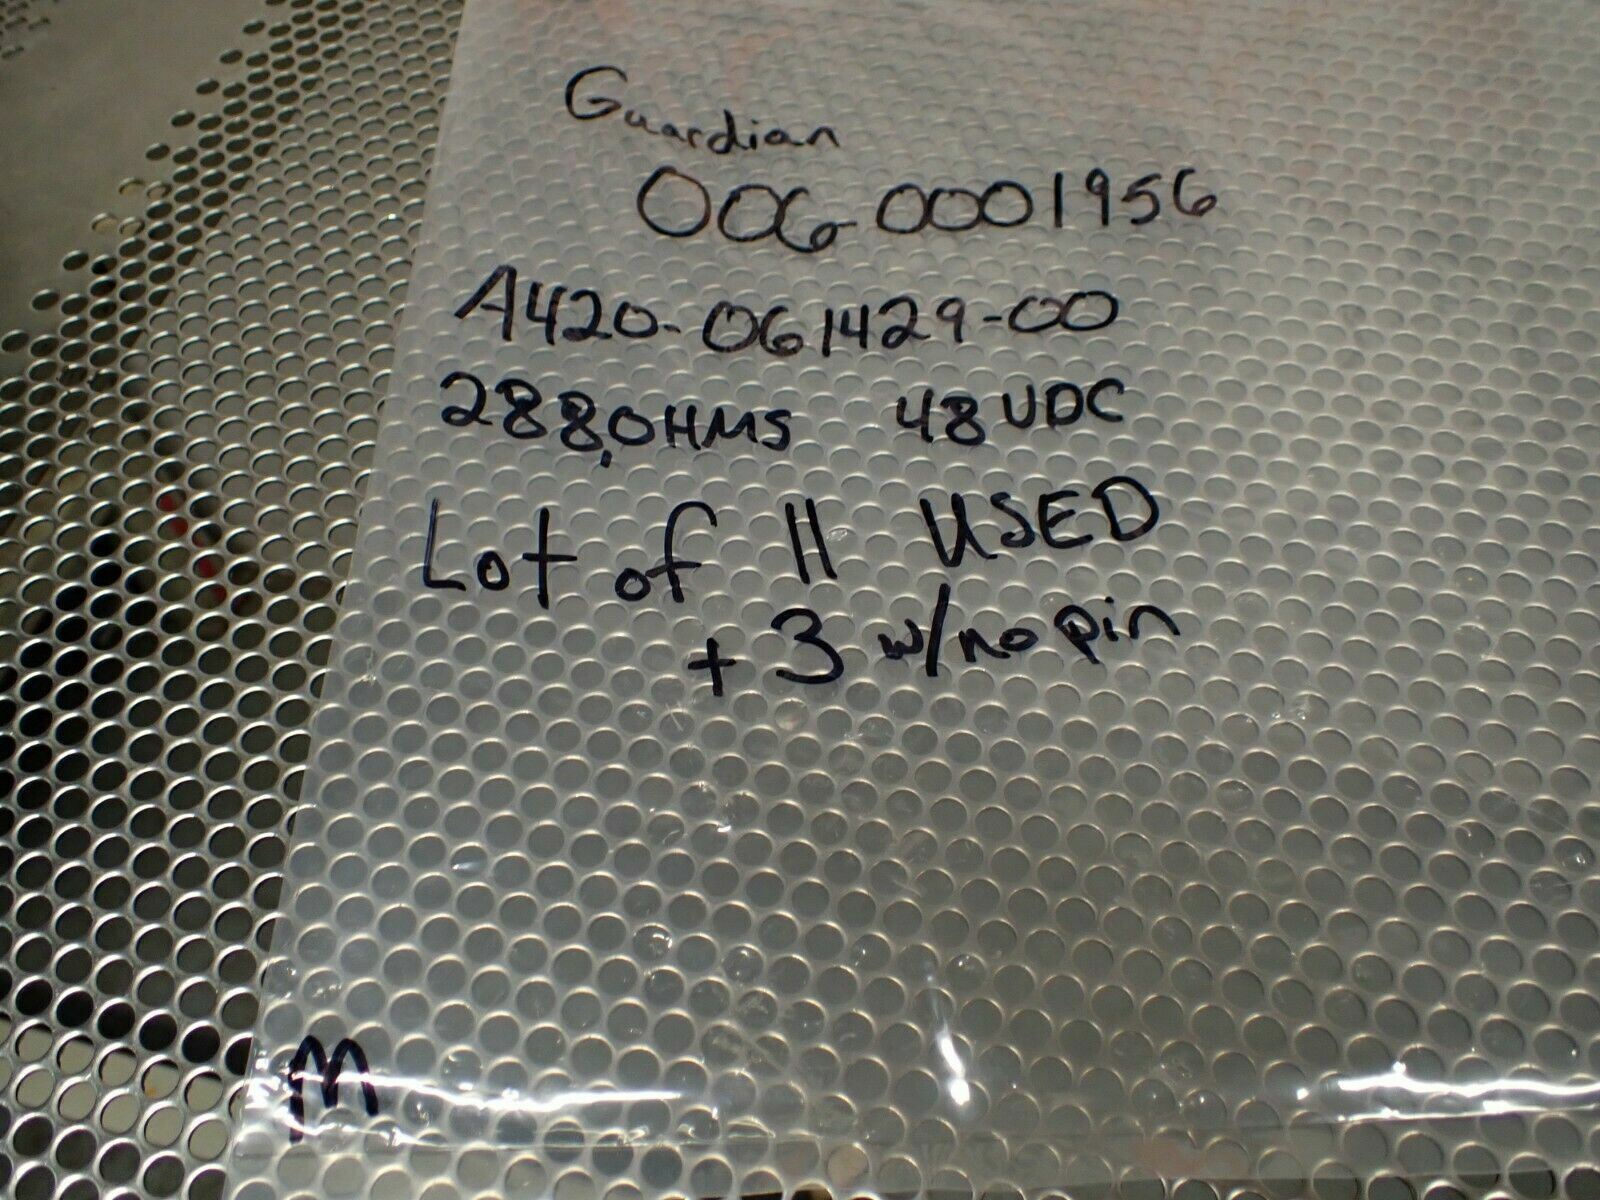 Guardian
006-0001956
A420-061429-00
288,OHMS 48VDC
Lot of 11 USED
+ 3 w/no pin
M